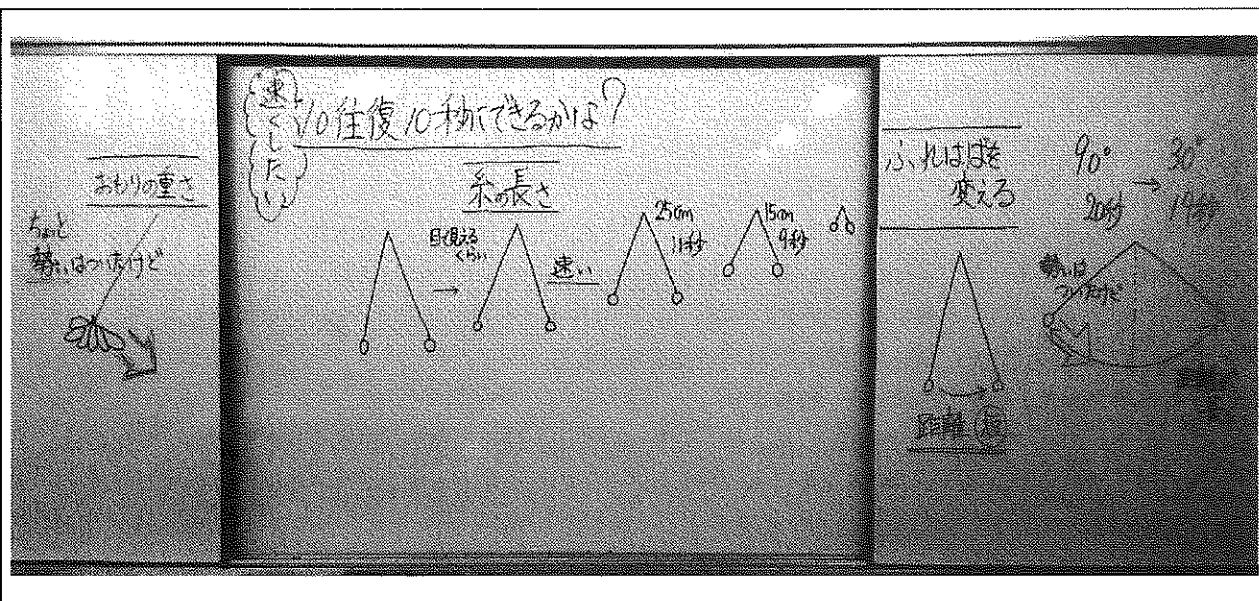 おもりの重さ
ちょっと
勢いはついたけど
速くしたい
10往復10秒にできるかな?
糸の長さ
目で見える
くらい
→
速い
25cm
11秒
15cm
9秒
ふれはばを
変える
90° → 30°
20秒 19秒
勢いは
ついたけど
距離